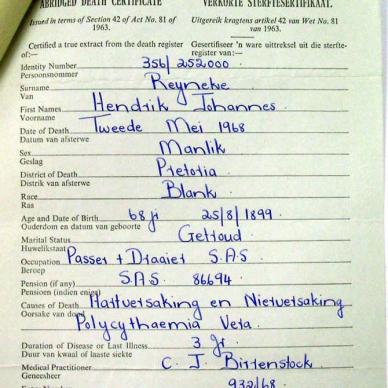 ABRIDGED DEATH CERTIFICATE VERKORTE STERFTESERTIFIKAAT.
Issued in terms of Section 42 of Act No. 81 of 1963. Uitgereik kragtens artikel 42 van Wet No. 81 van 1963.
Certified a true extract from the death register of:— Gesertifiseer 'n ware uittreksel uit die sterfteregister van:—
Identity Number 356/252000
Persoonsnommer
Surname Reyneke
Van
First Names Hendrik Johannes
Voorname
Date of Death Tweede Mei 1968
Datum van afsterwe
Sex Manlik
Geslag
District of Death Pretoria
Distrik van afsterwe
Race Blank
Ras
Age and Date of Birth 68 jr 25/8/1899
Ouderdom en datum van geboorte
Marital Status Getroud
Huwelikstaat
Occupation Passer + Draaier S.A.S
Beroep
Pension (if any) S.A.S. 86694
Pensioen (indien enige)
Causes of Death Hartversaking en Nierversaking
Oorsake van dood Polycythaemia Vera
Duration of Disease or Last Illness 3 jr
Duur van kwaal of laaste siekte
Medical Practitioner C. J. Birrenstock
Geneesheer
932/68